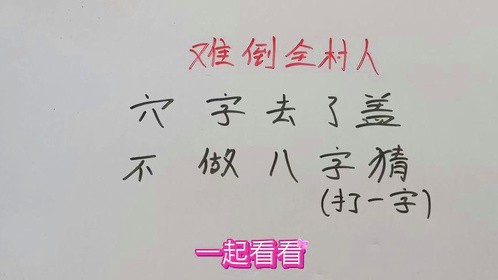 难倒全村人
穴字去了盖
不做八字猜
(打一字)
一起看看